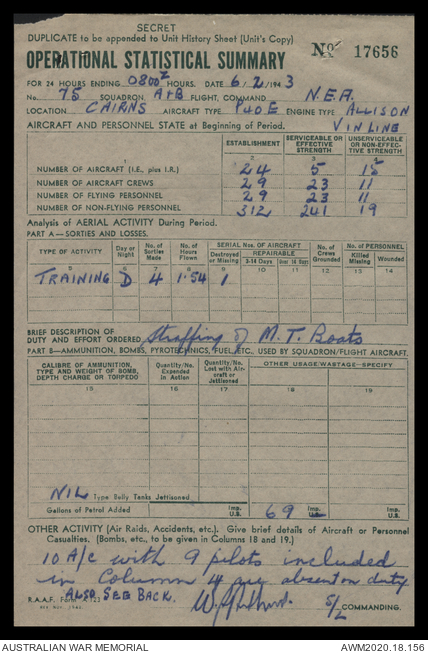 SECRET
DUPLICATE to be appended to Unit History Sheet (Unit's Copy)
OPERATIONAL STATISTICAL SUMMARY No 17656
FOR 24 HOURS ENDING 0800Z HOURS. DATE 6/2/1943
No. 75 SQUADRON A+B FLIGHT, COMMAND N.E.A.
LOCATION CAIRNS AIRCRAFT TYPE P40E ENGINE TYPE ALLISON
V INLINE
AIRCRAFT AND PERSONNEL STATE at Beginning of Period.
ESTABLISHMENT SERVICEABLE OR EFFECTIVE STRENGTH UNSERVICEABLE OR NON-EFFEC-TIVE STRENGTH
1 2 3 4
NUMBER OF AIRCRAFT (I.E., plus I.R.) 24 5 15
NUMBER OF AIRCRAFT CREWS 29 23 11
NUMBER OF FLYING PERSONNEL 29 23 11
NUMBER OF NON-FLYING PERSONNEL 312 241 19
Analysis of AERIAL ACTIVITY During Period.
PART A—SORTIES AND LOSSES.
TYPE OF ACTIVITY Day or Night No. of Sorties Made No. of Hours Flown SERIAL Nos. OF AIRCRAFT Destroyed or Missing REPAIRABLE 3-14 Days Over 14 Days No. of Crews Grounded No. of PERSONNEL Killed Missing Wounded
5 6 7 8 9 10 11 12 13 14
TRAINING D 4 1.54 1
BRIEF DESCRIPTION OF
DUTY AND EFFORT ORDERED Straffing of M.T. Boats
PART B—AMMUNITION, BOMBS, PYROTECHNICS, FUEL, ETC., USED BY SQUADRON/FLIGHT AIRCRAFT.
CALIBRE OF AMMUNITION, TYPE AND WEIGHT OF BOMB, DEPTH CHARGE OR TORPEDO Quantity/No. Expended in Action Quantity/No. Lost with Air-craft or Jettisoned OTHER USAGE/WASTAGE—SPECIFY
15 16 17 18 19
NIL Type Belly Tanks Jettisoned
Gallons of Petrol Added Imp. U.S. 69 Imp. U.S. Imp. U.S.
OTHER ACTIVITY (Air Raids, Accidents, etc.). Give brief details of Aircraft or Personnel
Casualties. (Bombs, etc., to be given in Columns 18 and 19.)
10 A/c with 9 pilots included
in Column 4 are absent on duty
ALSO SEE BACK.
R.A.A.F. Form A.121 S/L COMMANDING.
AUSTRALIAN WAR MEMORIAL AWM2020.18.156